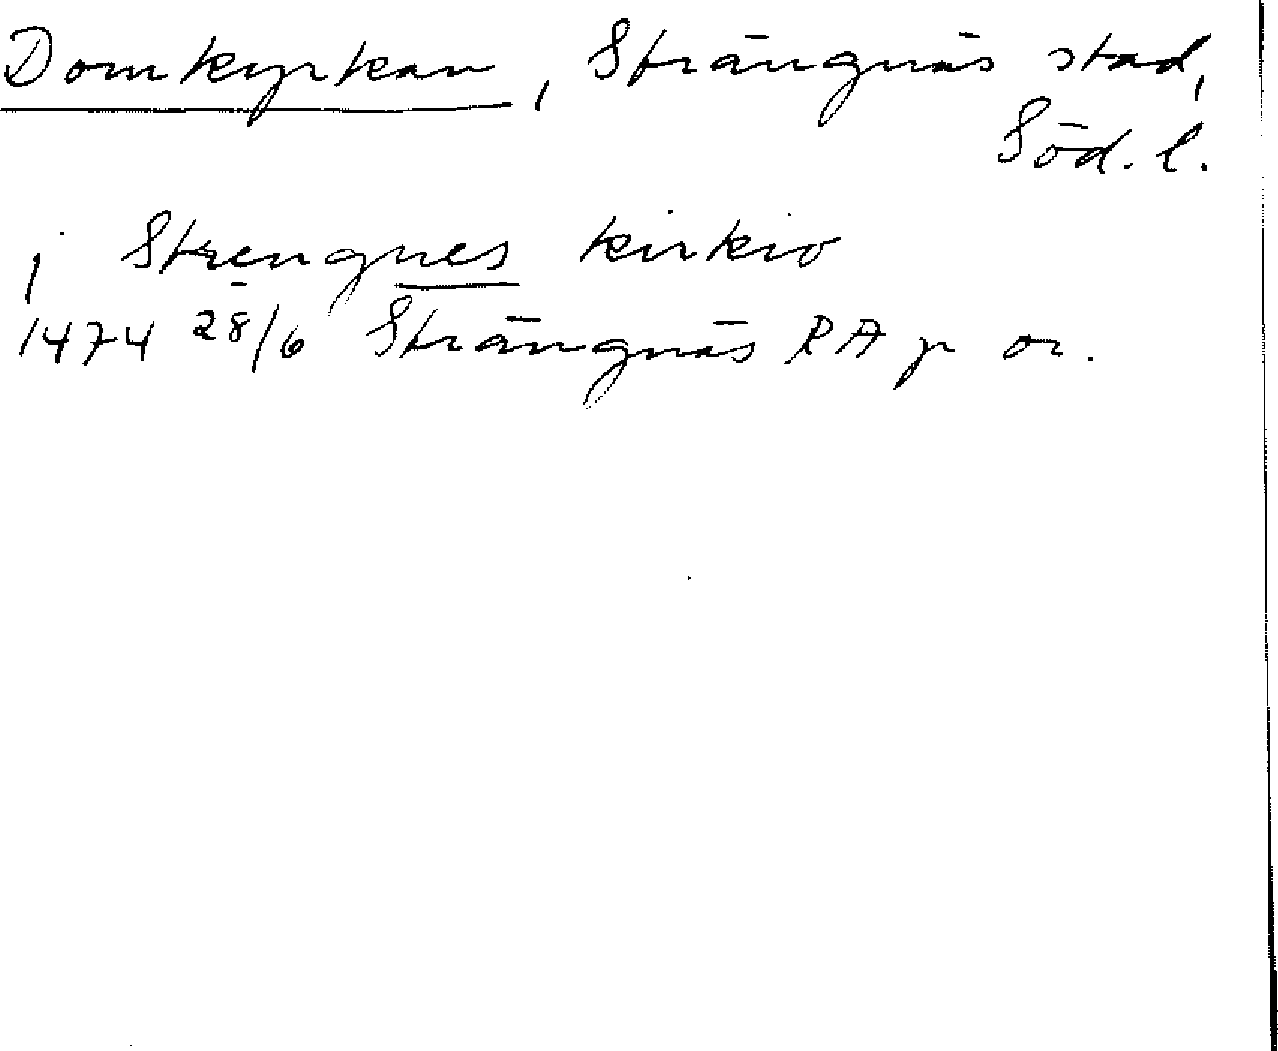 Domkyrkan, Strängnäs stad,
Söd. l.
j Strengnes kirkio
1474 28/6 Strängnäs RA p or.